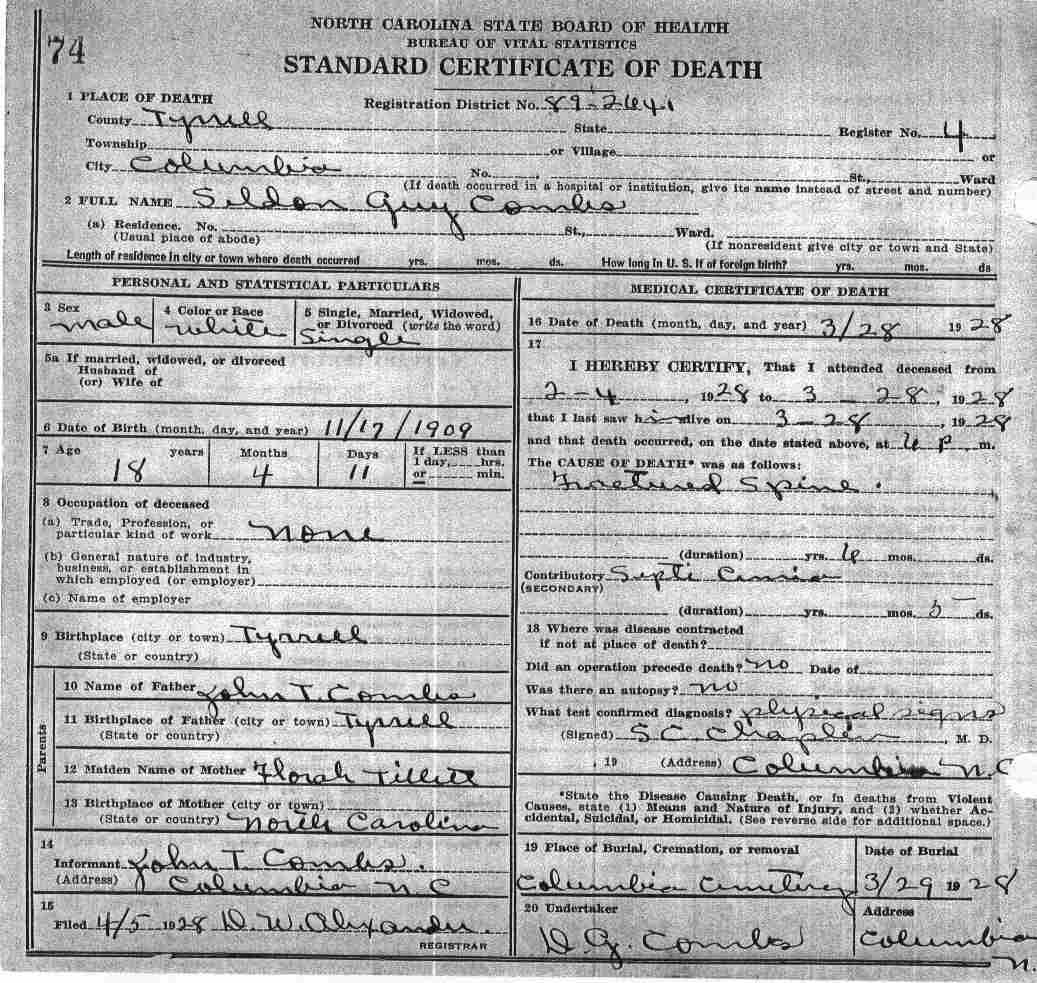 74
NORTH CAROLINA STATE BOARD OF HEALTH
BUREAU OF VITAL STATISTICS
STANDARD CERTIFICATE OF DEATH
1 PLACE OF DEATH
Registration District No. 89-2641
County Tyrrell State Register No. 4
Township or Village or
City Columbia No. St., Ward
(If death occurred in a hospital or institution, give its name instead of street and number)
2 FULL NAME Seldon Guy Combs
(a) Residence. No. St., Ward.
(Usual place of abode) (If nonresident give city or town and State)
Length of residence in city or town where death occurred yrs. mos. ds. How long in U. S. if of foreign birth? yrs. mos. ds
PERSONAL AND STATISTICAL PARTICULARS
3 Sex
male
4 Color or Race
white
5 Single, Married, Widowed,
or Divorced (write the word)
Single
5a If married, widowed, or divorced
Husband of
(or) Wife of
6 Date of Birth (month, day, and year) 11/17/1909
7 Age years Months Days If LESS than
1 day, hrs.
or min.
18 4 11
8 Occupation of deceased
(a) Trade, Profession, or
particular kind of work none
(b) General nature of industry,
business, or establishment in
which employed (or employer)
(c) Name of employer
9 Birthplace (city or town) Tyrrell
(State or country)
Parents
10 Name of Father John T. Combs
11 Birthplace of Father (city or town) Tyrrell
(State or country)
12 Maiden Name of Mother Florah Tillett
13 Birthplace of Mother (city or town)
(State or country) North Carolina
14
Informant John T. Combs.
(Address) Columbia N C
15
Filed 4/5 1928 D. W. Alexander
REGISTRAR
MEDICAL CERTIFICATE OF DEATH
16 Date of Death (month, day, and year) 3/28 1928
17
I HEREBY CERTIFY, That I attended deceased from
2-4, 1928 to 3-28, 1928
that I last saw him alive on 3-28, 1928
and that death occurred, on the date stated above, at p m.
The CAUSE OF DEATH* was as follows:
Fractured Spine.
(duration) yrs. mos. ds.
Contributory Septicemia
(SECONDARY)
(duration) yrs. mos. 5 ds.
18 Where was disease contracted
if not at place of death?
Did an operation precede death? no Date of
Was there an autopsy? no
What test confirmed diagnosis? physical signs
(Signed) S. C. Chaplin, M. D.
, 19 (Address) Columbia N.C
*State the Disease Causing Death, or in deaths from Violent
Causes, state (1) Means and Nature of Injury, and (2) whether Ac-
cidental, Suicidal, or Homicidal. (See reverse side for additional space.)
19 Place of Burial, Cremation, or removal
Columbia Cemetery
Date of Burial
3/29 1928
20 Undertaker
D. G. Combs
Address
Columbia
N.